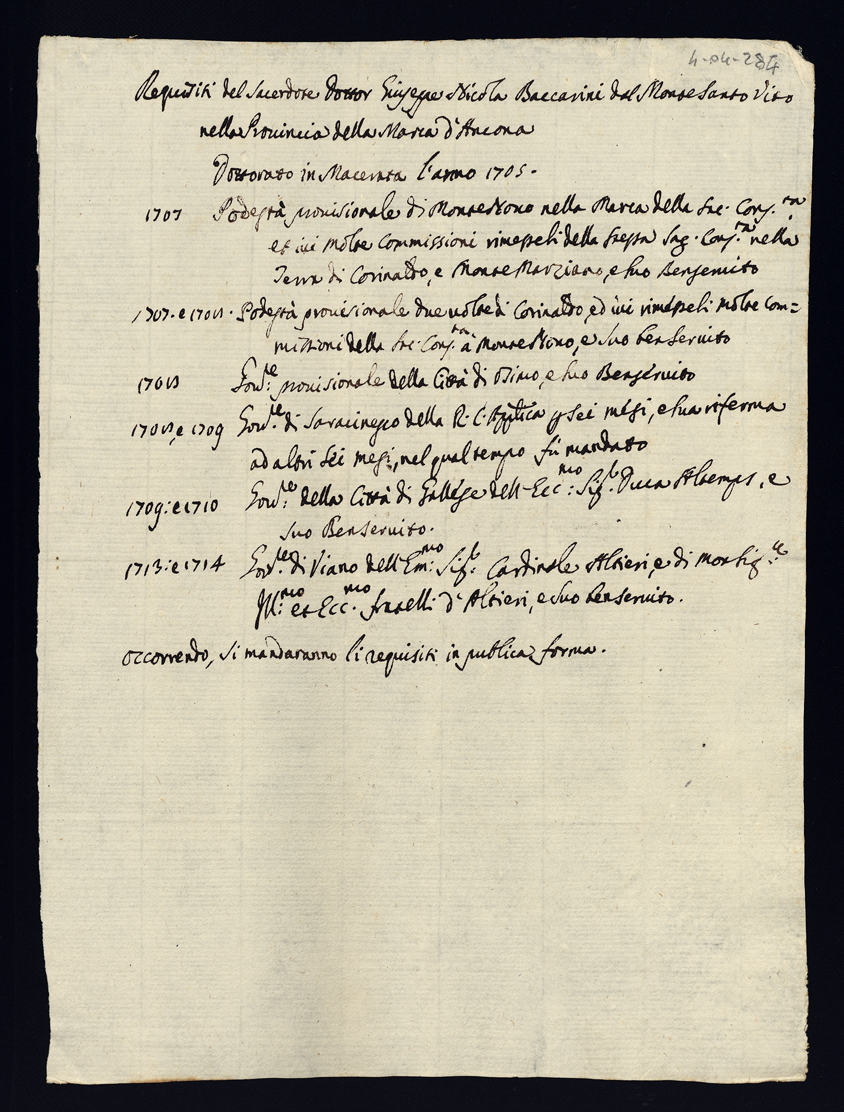 4-04-284
Requisiti del Sacerdote Dottor Giuseppe Nicola Baccarini dal Monte Santo Vito
nella Provincia della Marca d'Ancona
Dottorato in Macerata l'anno 1705.
1707 Podestà provisionale di Monte Nono nella Marca della Sac. Cong.ne
et ivi molte Commissioni rimesseli della stessa Sag. Cong.ne nella
Terra di Corinaldo, e Monte Marziano, e suo Benservito
1707. e 1708. Podestà provisionale due volte di Corinaldo, ed ivi rimesseli molte Com=
missioni della Sac. Cong.ne à Monte Nono, e suo benservito
1708 Gov.re provisionale della Città di Osimo, e suo Benservito
1708, e 1709 Gov.re di Saracinesco della R. C. Apstlica p sei mesi, e sua riferma
ad altri sei mesi, nel qual tempo fù mandato
1709: e 1710 Gov.re della Città di Gallese dell' Ecc.mo Sig.r Duca Altemps, e
suo Benservito.
1713: e 1714 Gov.re di Viano dell' Em.mo Sig.r Cardinale Altieri, e di Monsig.re
Ill.mo et Ecc.mo fratelli d'Altieri, e suo benservito.
Occorrendo, si mandaranno li requisiti in publica forma.